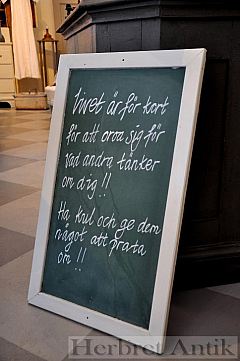 Livet är för kort
för att oroa sig för
vad andra tänker
om dig!!
Ha kul och ge dem
något att prata
om!!
Herbret Antik